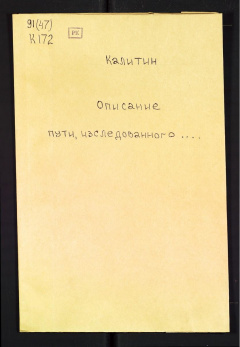 91(47)
К172
Калитин
Описание
пути, исследованного ....